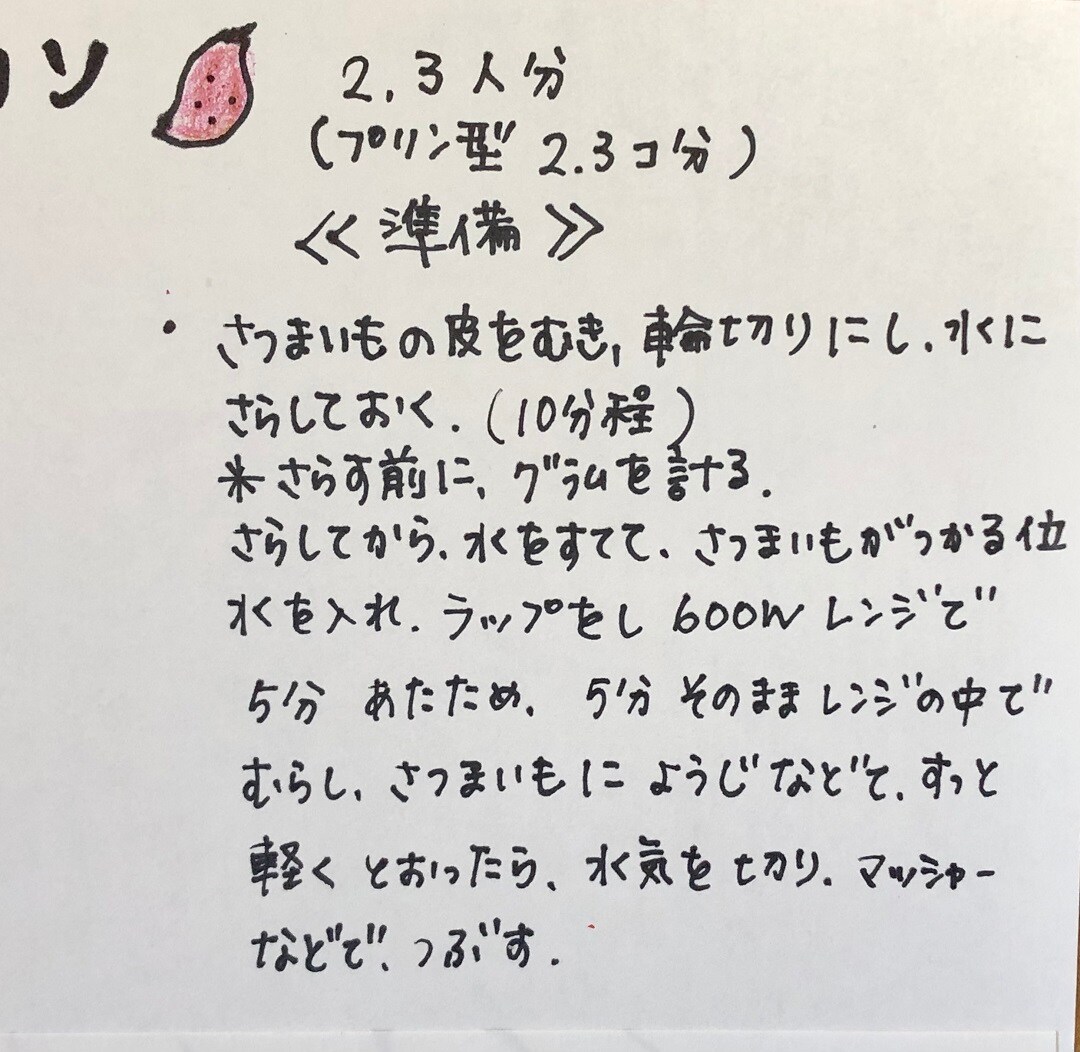 ン
2.3人分
(プリン型 2.3コ分)
≪準備≫
・さつまいもの皮をむき、輪切りにし、水に
さらしておく。(10分程)
※さらす前に、グラムを計る。
さらしてから、水をすてて、さつまいもがつかる位
水を入れ、ラップをし 600W レンジで
5分 あたため、5分 そのままレンジの中で
むらし、さつまいもに ようじなどで、すっと
軽く とおったら、水気を切り、マッシャー
などで、つぶす。